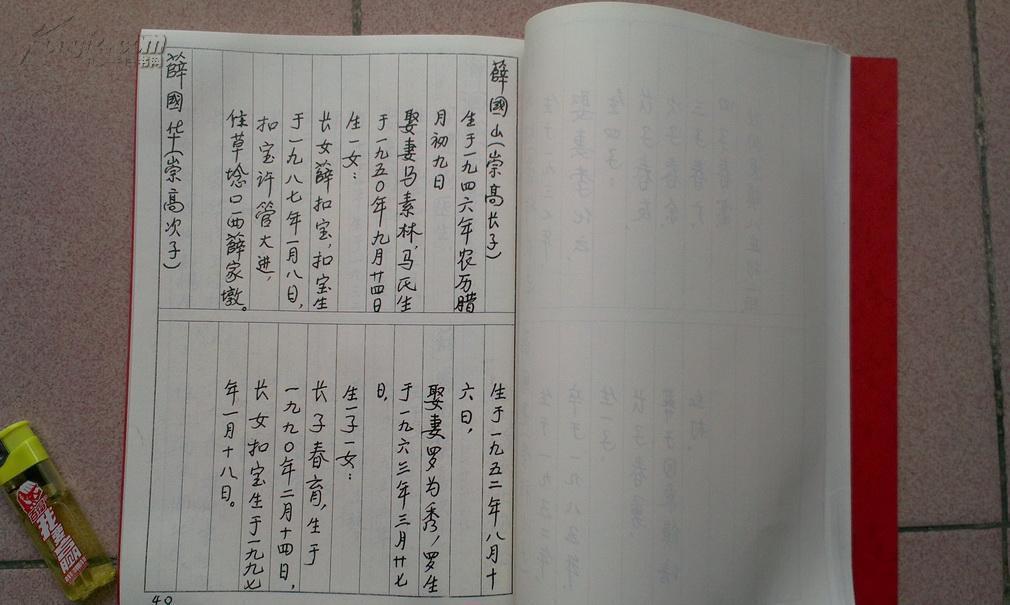 薛國山(崇高长子)
生于一九四六年农历腊
月初九日
娶妻马素林,马氏生
于一九五〇年九月廿四日
生一女:
长女薛扣宝,扣宝生
于一九八七年一月八日,
扣宝许管大进,
住草埝口西薛家墩。
薛國华(崇高次子)
生于一九五二年八月十
六日,
娶妻罗为秀,罗生
于一九六三年三月廿七
日,
生一子一女:
长子春育,生于
一九九〇年二月十四日,
长女扣宝生于一九九七
年一月十八日。
40